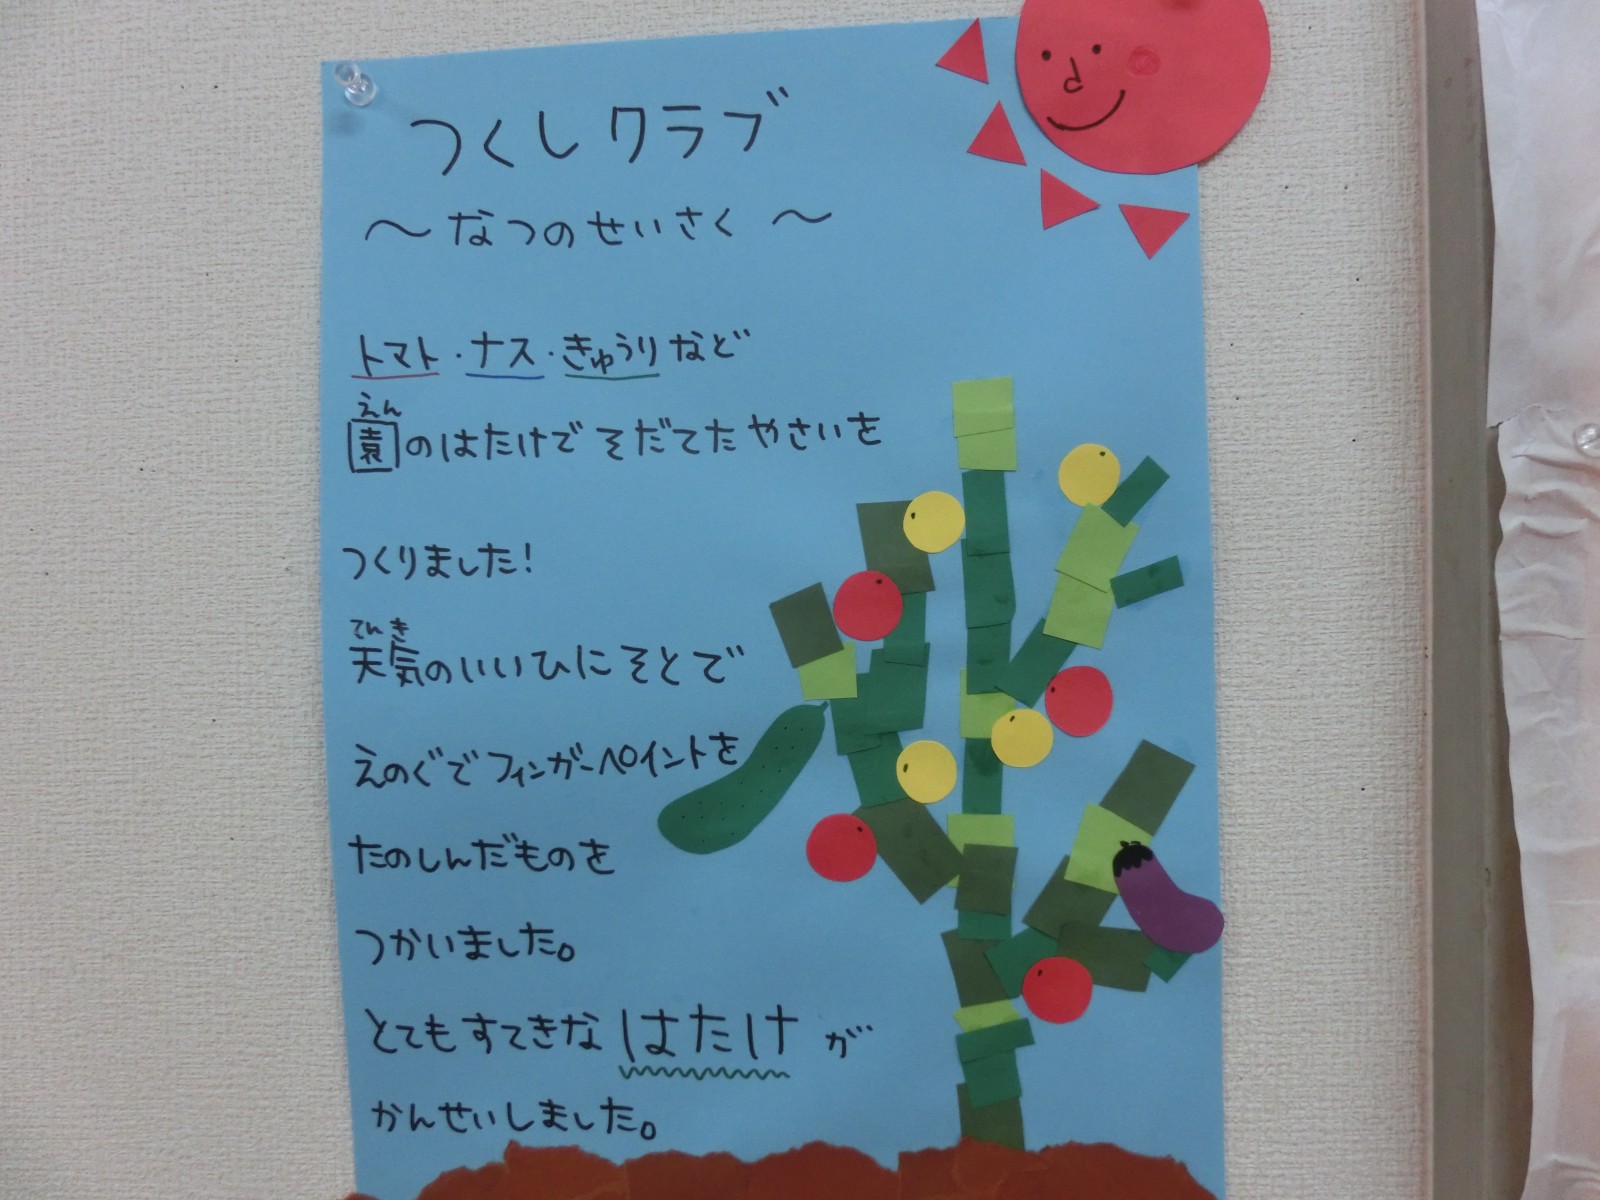 つくしクラブ
〜なつのせいさく〜
トマト・ナス・きゅうりなど
えん
園のはたけでそだてたやさいを
つくりました!
てんき
天気のいいひにそとで
えのぐでフィンガーペイントを
たのしんだものを
つかいました。
とてもすてきなはたけが
かんせいしました。